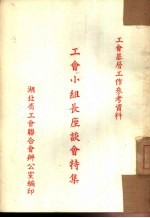 工會基層工作參考資料
工會小組長座談會特集
湖北省工會聯合會辦公室編印